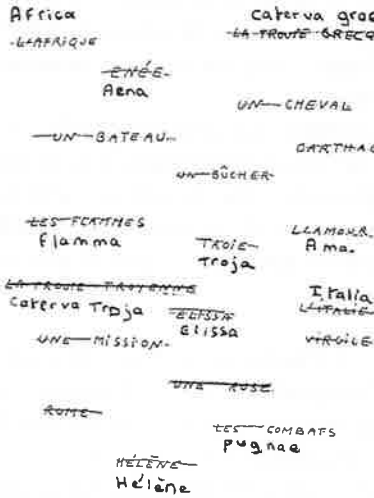 Africa
L'AFRIQUE
Caterva grae
LA TROUPE GRECQ
ENÉE
Aena
UN CHEVAL
UN BATEAU
CARTHAG
UN BÛCHER
LES FLAMMES
flamma
TROIE
Troja
L'AMOUR
Ama.
LA TROUPE TROYENNE
Caterva Troja
ELISSA
Elissa
Italia
L'ITALIE
UNE MISSION
VIRGILE
UNE RUSE
ROME
LES COMBATS
pugnae
HÉLÈNE
Hélène